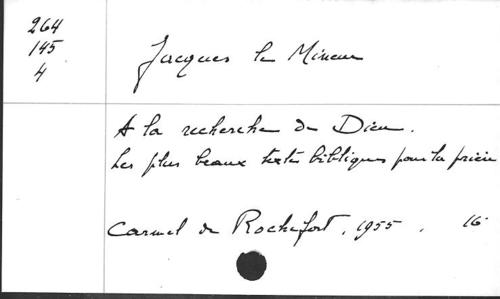 264
145
4
Jacques le Mineur
A la recherche de Dieu.
Les plus beaux textes bibliques pour la prière
Carmel de Rochefort, 1955, 16